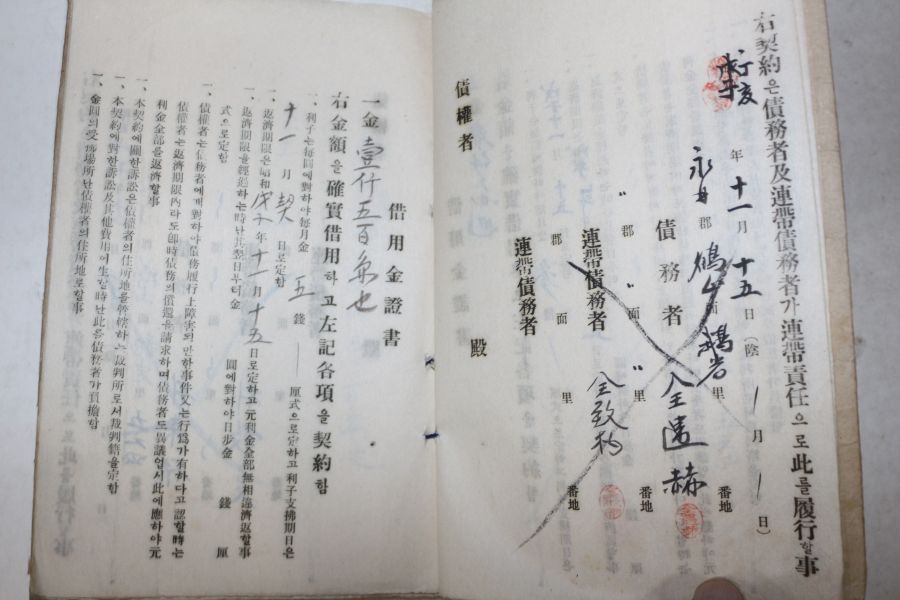 右契約은債務者及連帶債務者가連帶責任으로此를履行할事
丁亥年十一月十五日(陰 月 日)
永 郡 鶴山面 鴻岩里 番地
債務者 全遇赫
〃郡 〃面 〃里 番地
連帶債務者 全致杓
郡 面 里 番地
連帶債務者
債權者 殿
借用金證書
一金壹仟五百 也
右金額을確實借用하고左記各項을契約함
一、利子는每圓에對하야每月金 五 錢 厘式으로定하고利子支拂期日은
十一月 契 日로定함
一、返濟期限은昭和戊子年十一月十五日로定하고元利金全部無相違濟返할事
返濟期限을經過하는時난其翌日부터金 圓에對하야日步金 錢 厘
式으로定함
一、債權者는債務者에게對하야債務履行上障害의만한事件又는行爲가有하다고認할時는
債權者는返濟期限內라도卽時債務의償還을請求하며債務者도異議업시此에應하야元
利金全部를返濟할事
一、本契約에關한訴訟은債權者의住所地를管轄하는裁判所로서裁判籍을定함
一、本契約에對한訴訟及其他費用이生할時난此를債務者가負擔함
一、金圓의受拂場所난債權者의住所地로할事